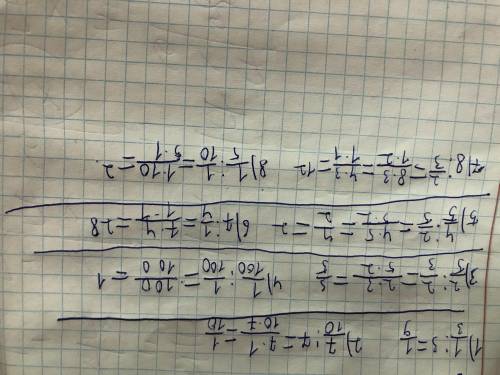 1) 1/3 : 3 = 1/9 2) 7/10 : 7 = 7·1/10·7 = 1/10
3) 2/5 : 2/3 = 2·3/5·2 = 3/5 4) 1/100 : 1/100 = 100/100 = 1
5) 4/5 : 2/5 = 4·5/5·2 = 4/2 = 2 6) 7 : 1/4 = 7·4/1·1 = 28
7) 8 : 2/3 = 8·3/1·2 = 4·3/1·1 = 12 8) 1/5 : 1/10 = 1·10/5·1 = 2